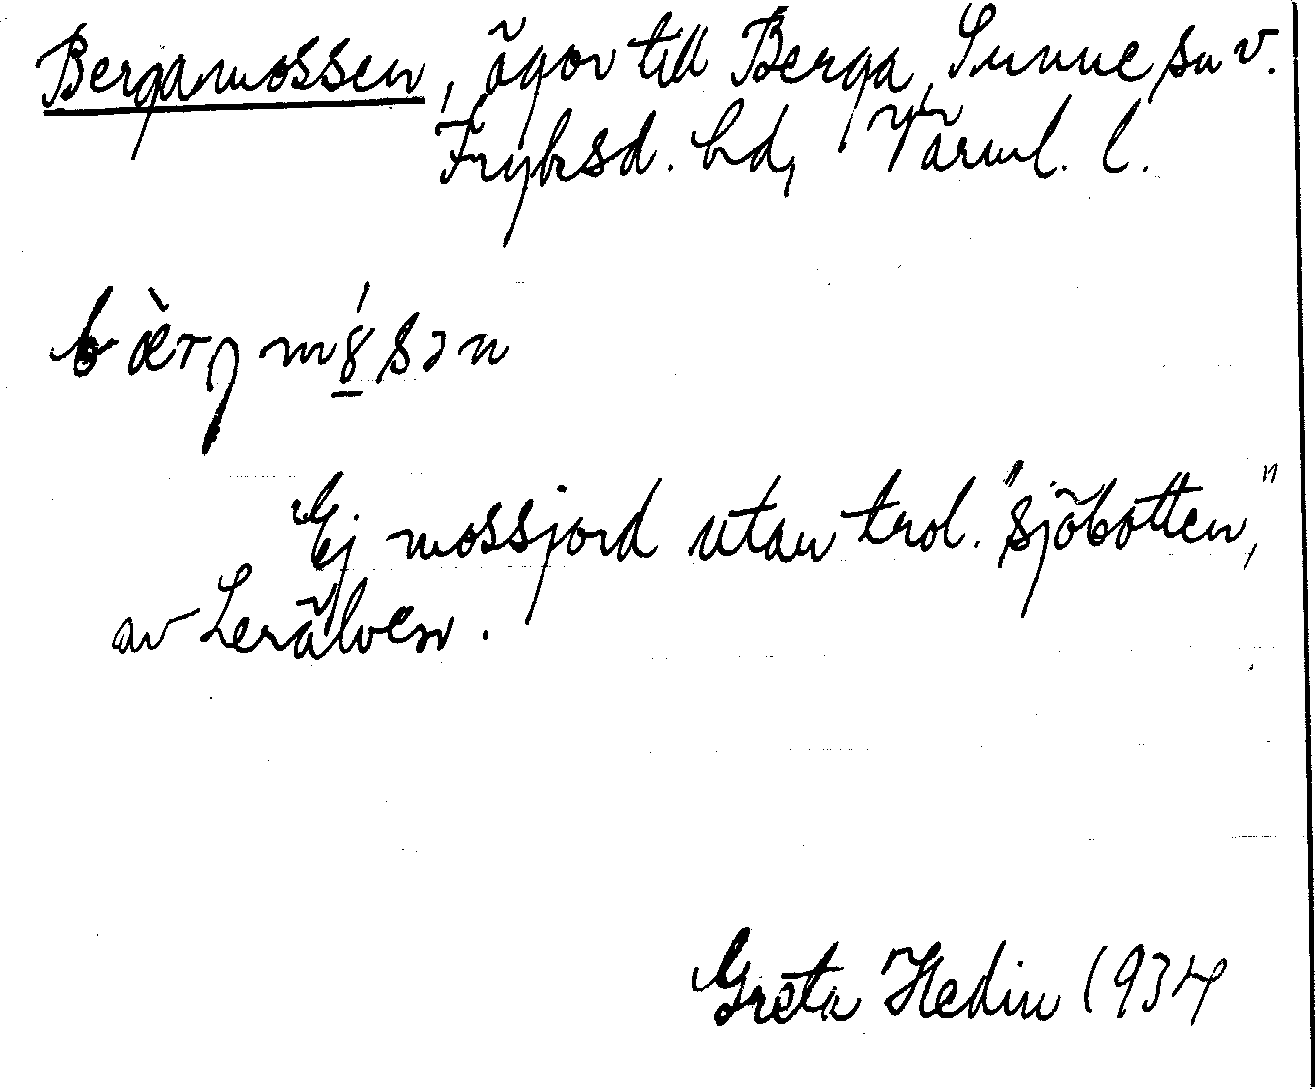 Bergamossen, ägor till Berga, Sunne sn v.
Fryksd. hd, Värml. l.
bæ̀rɡm8́sən
Ej mossjord utan trol. "sjöbotten,"
av Lerälven.
Greta Hedin 1934